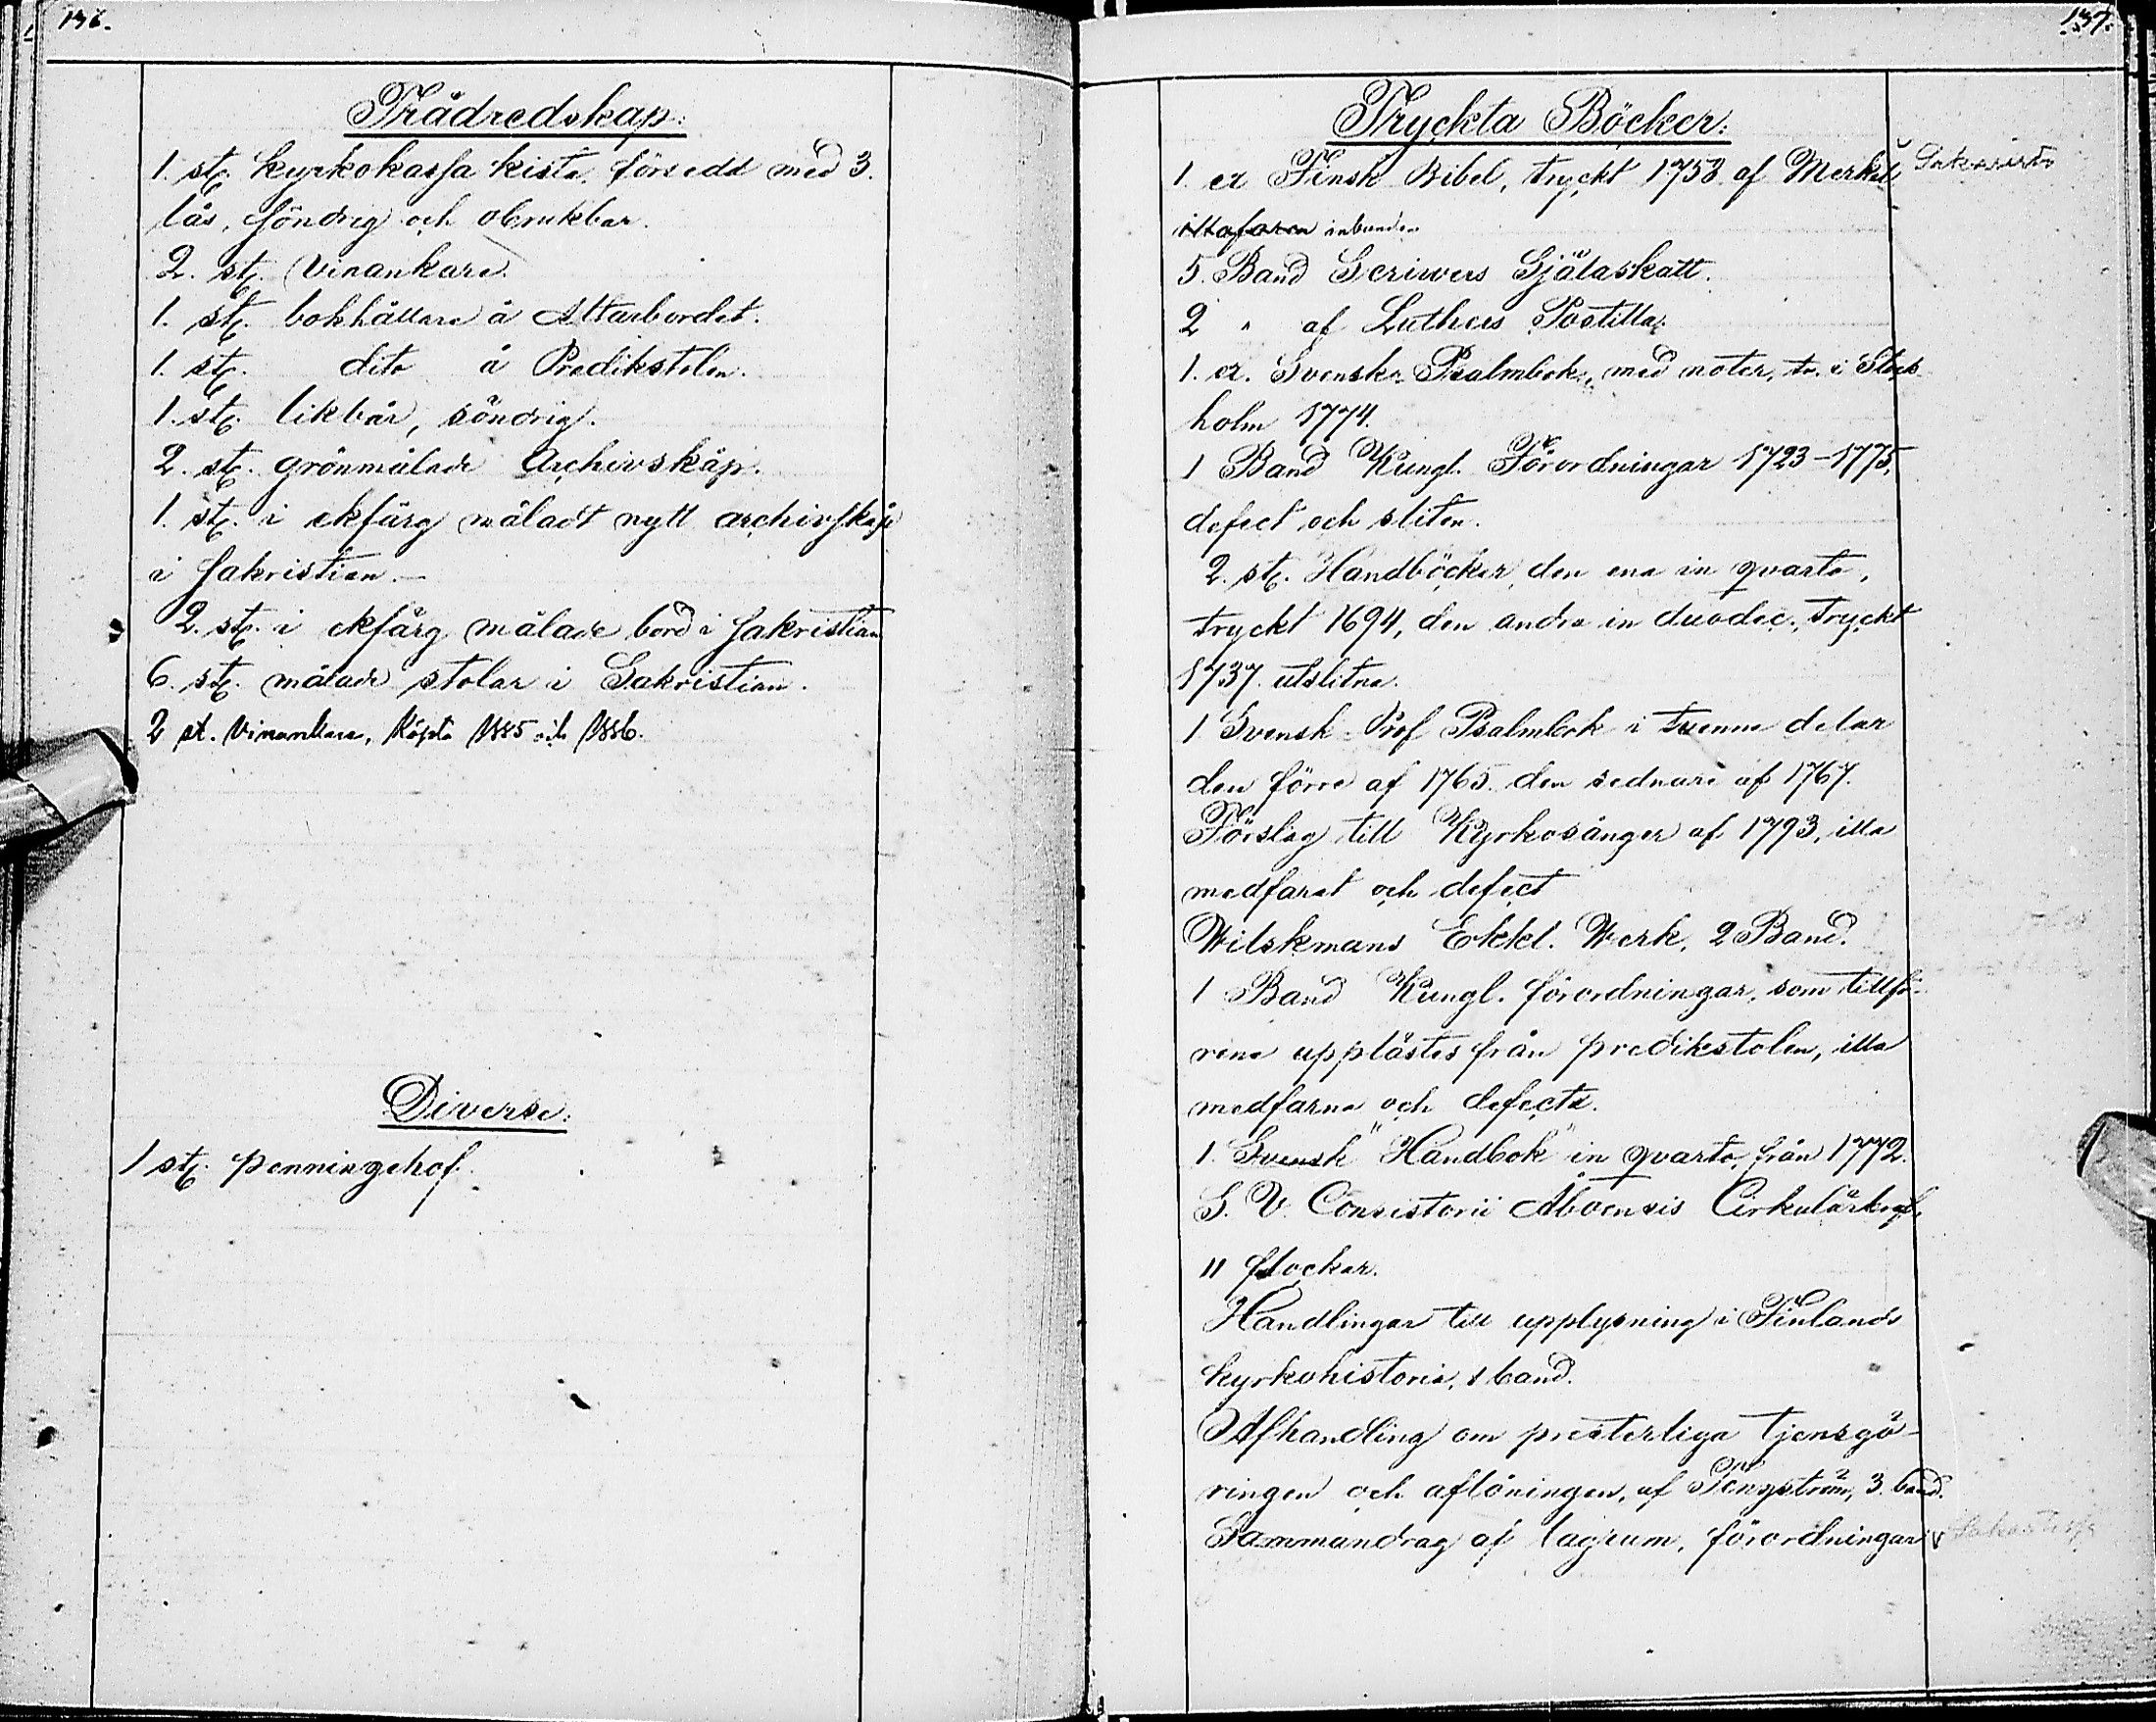 136.
Trädredskap:
1. st. kyrkokassa kista, försedd med 3.
lås, söndrig och obrukbar.
2. st. Vinankare.
1. st. bokhållare å Altarbordet.
1. st. dito å Predikstolen.
1. st. likbår, söndrig.
2. st. grönmålade Archivskåp.
1. st. i ekfärg måladt nytt archivskåp
i Sakristian.
2. st. i ekfärg målade bord i Sakristian
6. st. målade stolar i Sakristian.
2 st. Vinankare, köpta 1885 och 1886.
Diverse:
1 st. penningehof.
137.
Tryckta Böcker:
1. ex Finsk Bibel, tryckt 1758 af Merkel,
inbunden
5. Band Scriwers Själaskatt.
2 " af Luthers Postilla.
1. ex. Svensk Psalmbok, med noter, tr. i Stock-
holm 1774.
1 Band Kungl. Förordningar 1723-1775,
defect och sliten.
2. st. Handböcker, den ena in qvarto,
tryckt 1694, den andra in duodec., tryckt
1737. utslitna.
1 Svensk Prof Psalmbok i tvenne delar
den förre af 1765. den sednare af 1767.
Förslag till Kyrkosånger af 1793, illa
medfaret och defect
Wilskmans Ekkl. Werk, 2 Band.
1 Band Kungl. förordningar, som tillfö-
rene upplästes från predikstolen, illa
medfarna och defecta.
1. Svensk "Handbok" in qvarto, från 1772.
S. V. Consistorii Aboensis Cirkulärbref,
11 flockar.
Handlingar till upplysning i Finlands
kyrkohistoria, 1 band.
Afhandling om presterliga tjensgö-
ringen och aflöningen, af Tengström, 3. band.
Sammandrag af lagrum, förordningar